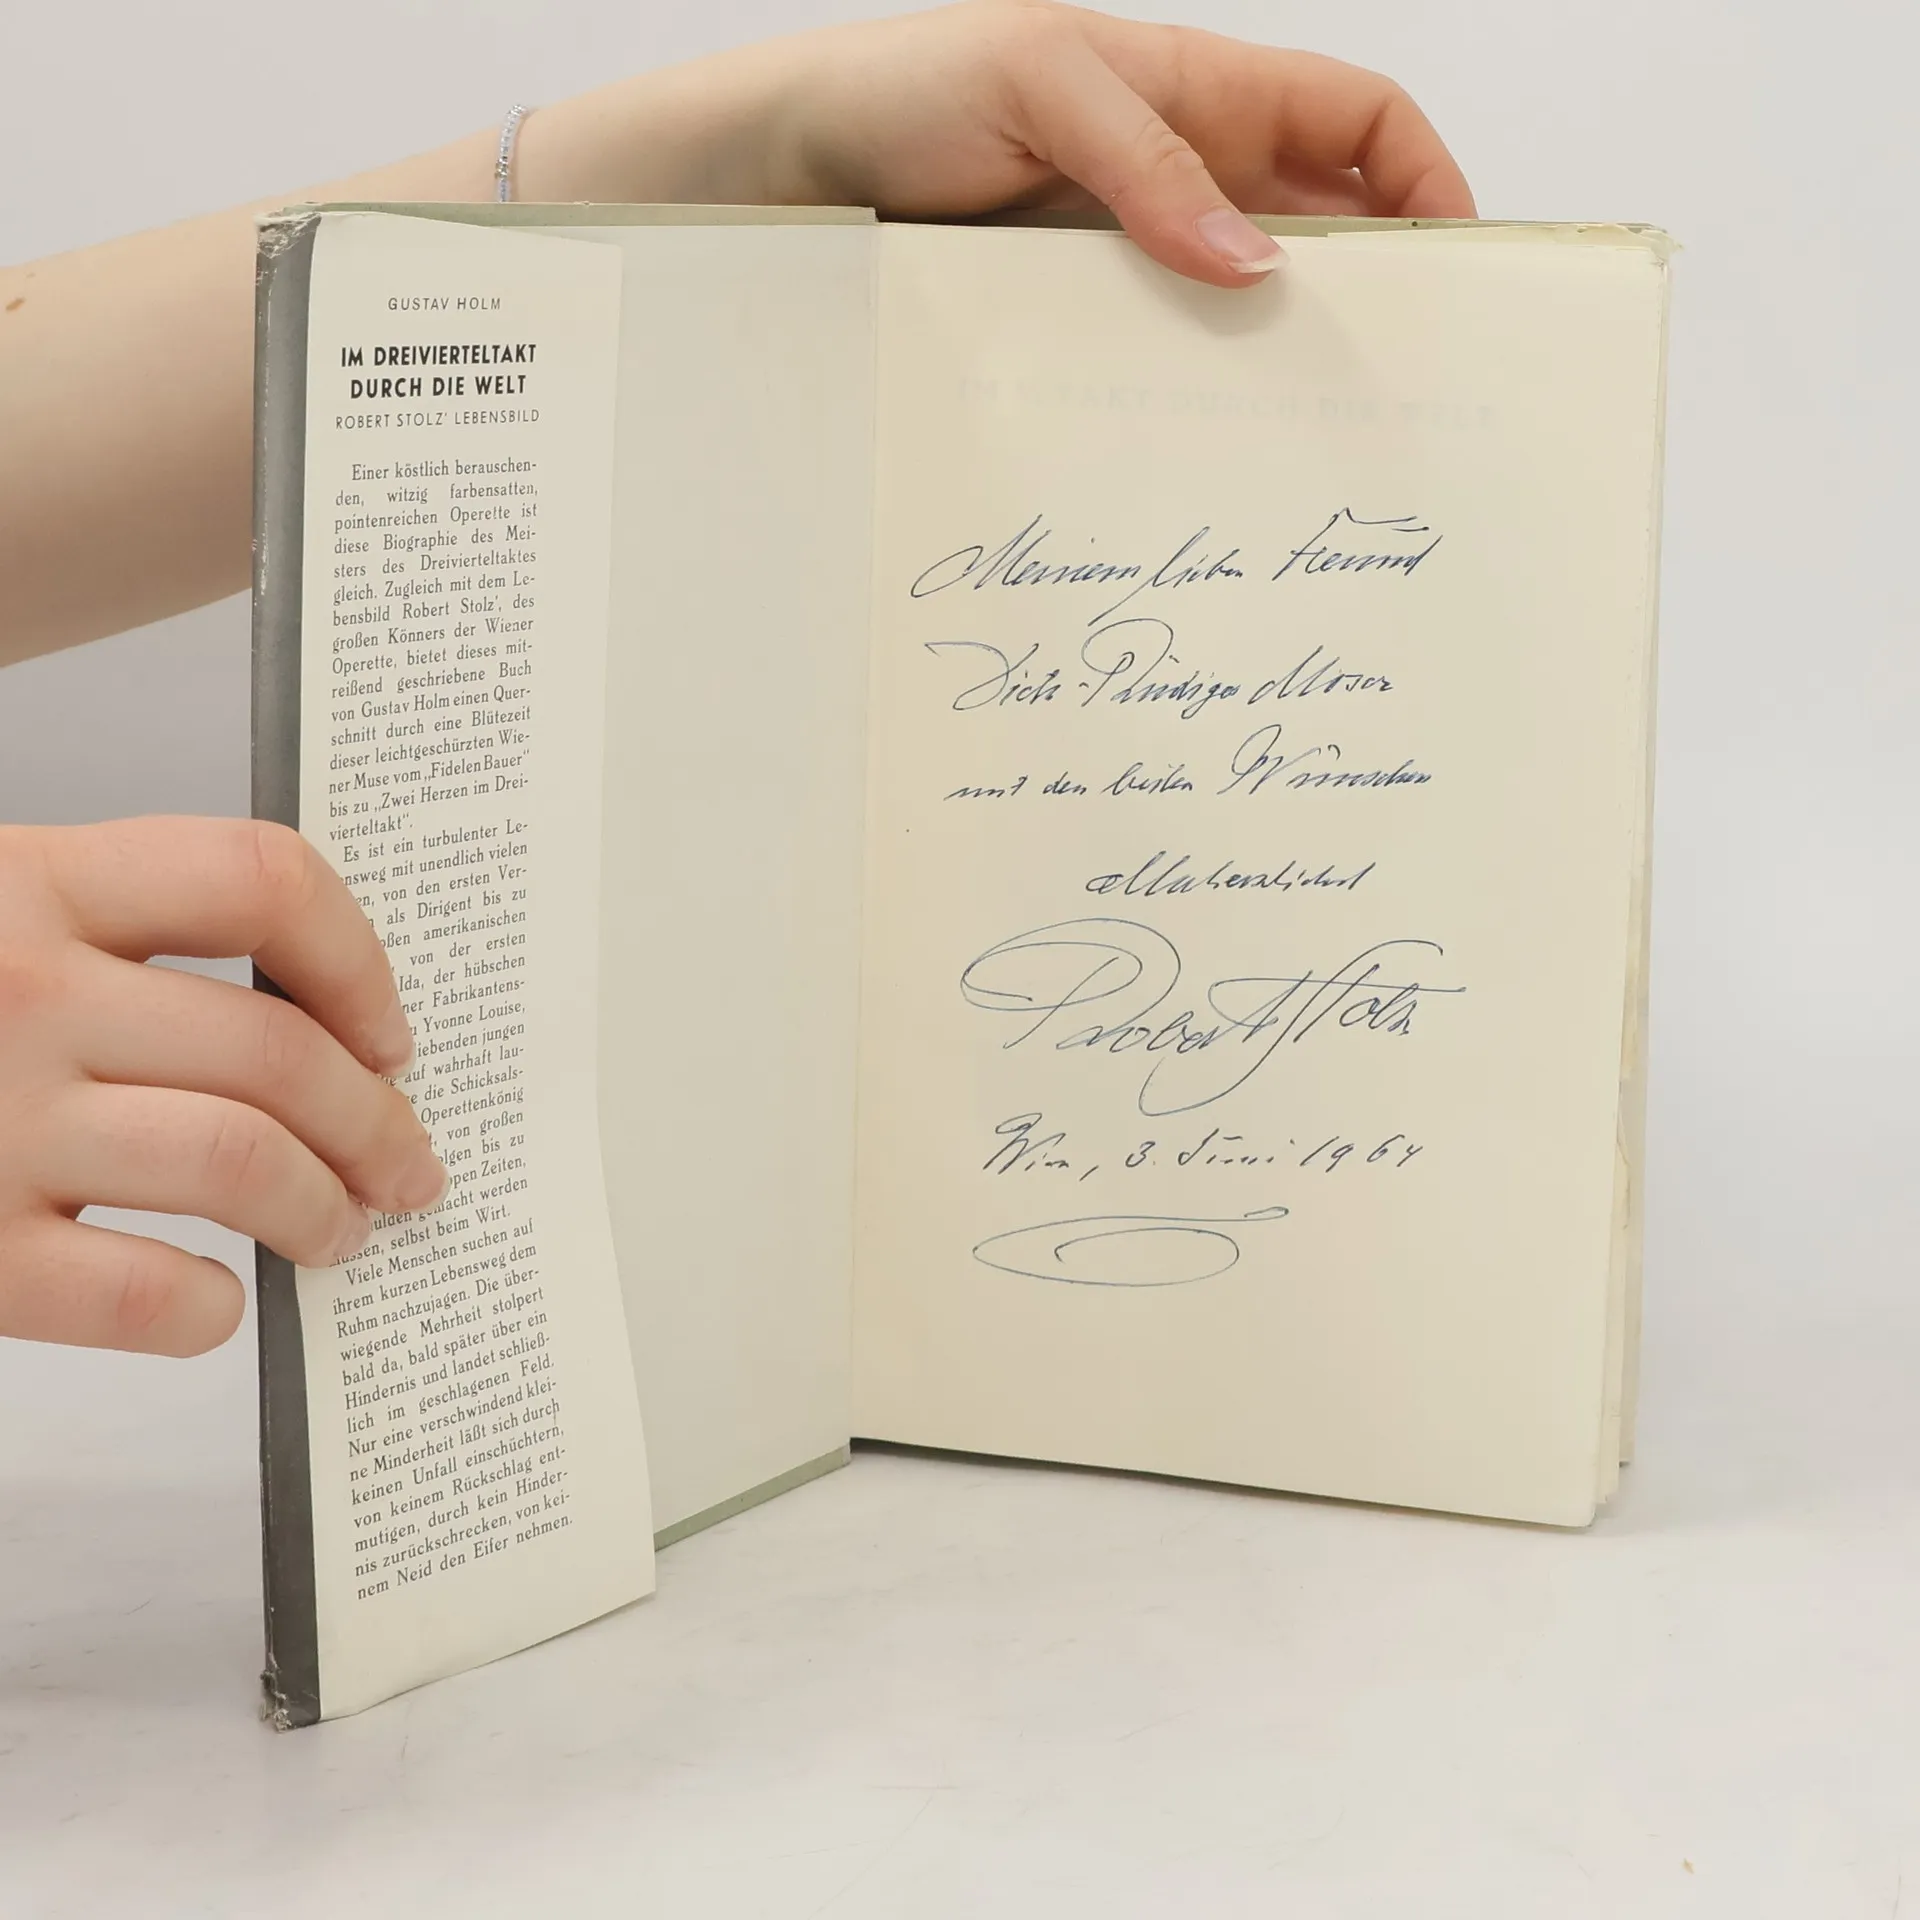 GUSTAV HOLM
IM DREIVIERTELTAKT
DURCH DIE WELT
ROBERT STOLZ' LEBENSBILD
Einer köstlich berauschen-
den, witzig farbensatten,
pointenreichen Operette ist
diese Biographie des Mei-
sters des Dreivierteltaktes
gleich. Zugleich mit dem Le-
bensbild Robert Stolz', des
großen Könners der Wiener
Operette, bietet dieses mit-
reißend geschriebene Buch
von Gustav Holm einen Quer-
schnitt durch eine Blütezeit
dieser leichtgeschürzten Wie-
ner Muse vom „Fidelen Bauer"
bis zu „Zwei Herzen im Drei-
vierteltakt".
Es ist ein turbulenter Le-
nsweg mit unendlich vielen
en, von den ersten Ver-
n als Dirigent bis zu
oßen amerikanischen
, von der ersten
Ida, der hübschen
ner Fabrikantens-
u Yvonne Louise,
iebenden jungen
auf wahrhaft lau-
e die Schicksals-
Operettenkönig
t, von großen
olgen bis zu
ppen Zeiten,
ulden gemacht werden
müssen, selbst beim Wirt.
Viele Menschen suchen auf
ihrem kurzen Lebensweg dem
Ruhm nachzujagen. Die über-
wiegende Mehrheit stolpert
bald da, bald später über ein
Hindernis und landet schließ-
lich im geschlagenen Feld.
Nur eine verschwindend klei-
ne Minderheit läßt sich durch
keinen Unfall einschüchtern,
von keinem Rückschlag ent-
mutigen, durch kein Hinder-
nis zurückschrecken, von kei-
nem Neid den Eifer nehmen.
IM ¾ TAKT DURCH DIE WELT
Meinem lieben Freund
Rüdiger Moser
mit den besten Wünschen
Allerherzlichst
Robert Stolz
Wien, 3. Juni 1964